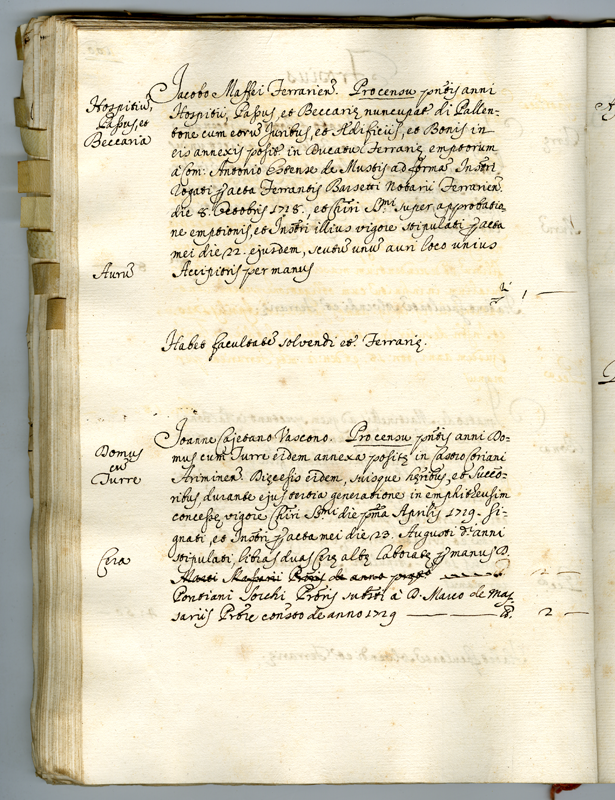 Jacobo Maffei Ferrarien. Pro censu pñtis anni
Hospitiũ,
Passus, et
Beccaria
Hospitii, Passus, et Beccarię nuncupat. di Pallen-
tone cum eorũ Juribus, et Ædificiis, et Bonis in
eis annexis posit. in Ducatu Ferrarię emptorum
à Com: Antonio Estense de Mustis ad formã Instrti
Rogati p acta Ferrantis Barsetti Notarii Ferrarien.
die 8. Octobris 1718., et Chiri SSmi super approbatio-
ne emptionis, et Instrti illius vigore stipulati p acta
mei die 22. ejusdem, scutũ unũ auri loco unius
Aurũ
Accipitris per manus
1 —
Habet facultatẽ solvendi etc. Ferrarię.
Domus
cũ
Turre
Joanne Cajetano Vascono. Pro censu pñtis anni Do-
mus cum Turre eidem annexa positę in Castro Coriani
Ariminen. Dięcesis eidem, suisque hęribus, et Succo-
ribus durante ejus tertia generatione in emphiteusim
concessę vigore Chiri SSmi die pma Aprilis 1719. si-
gnati, et Instrti p acta mei die 23. Augusti di anni
Cera
stipulati, libras duas Cerę albę laboratę p manus D.
Pontiani Sorchi Ptoris substi à D. Marco de Mas-
sariis Ptore consto de anno 1719 — lb. 2 —